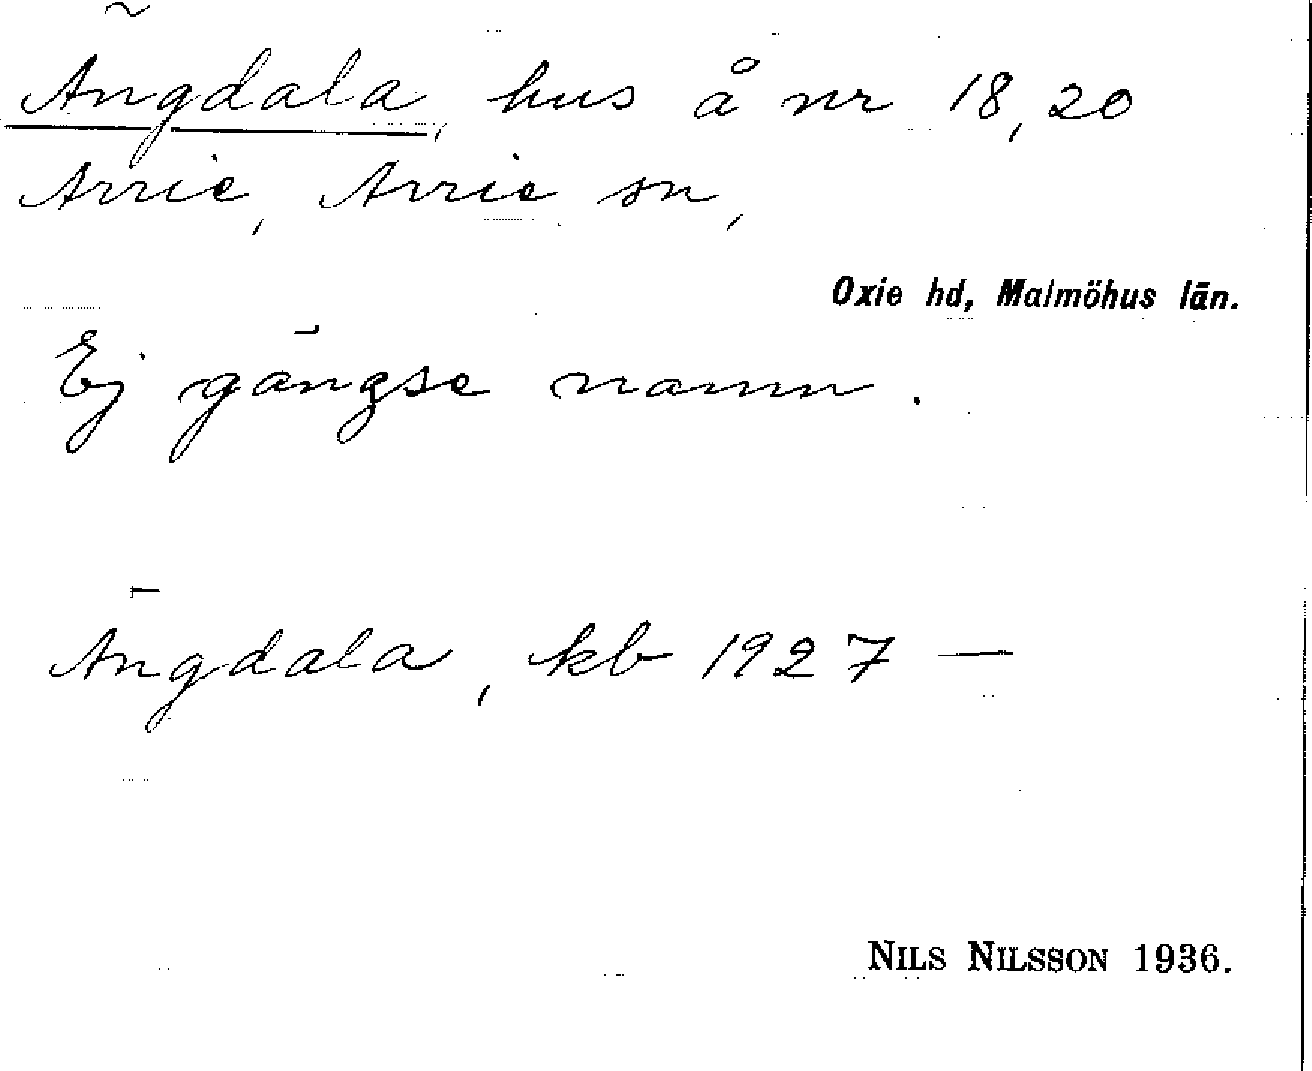 Ängdala, hus å nr 18, 20
Arrie, Arrie sn,
Oxie hd, Malmöhus län.
Ej gängse namn.
Ängdala, kb 1927 —
NILS NILSSON 1936.